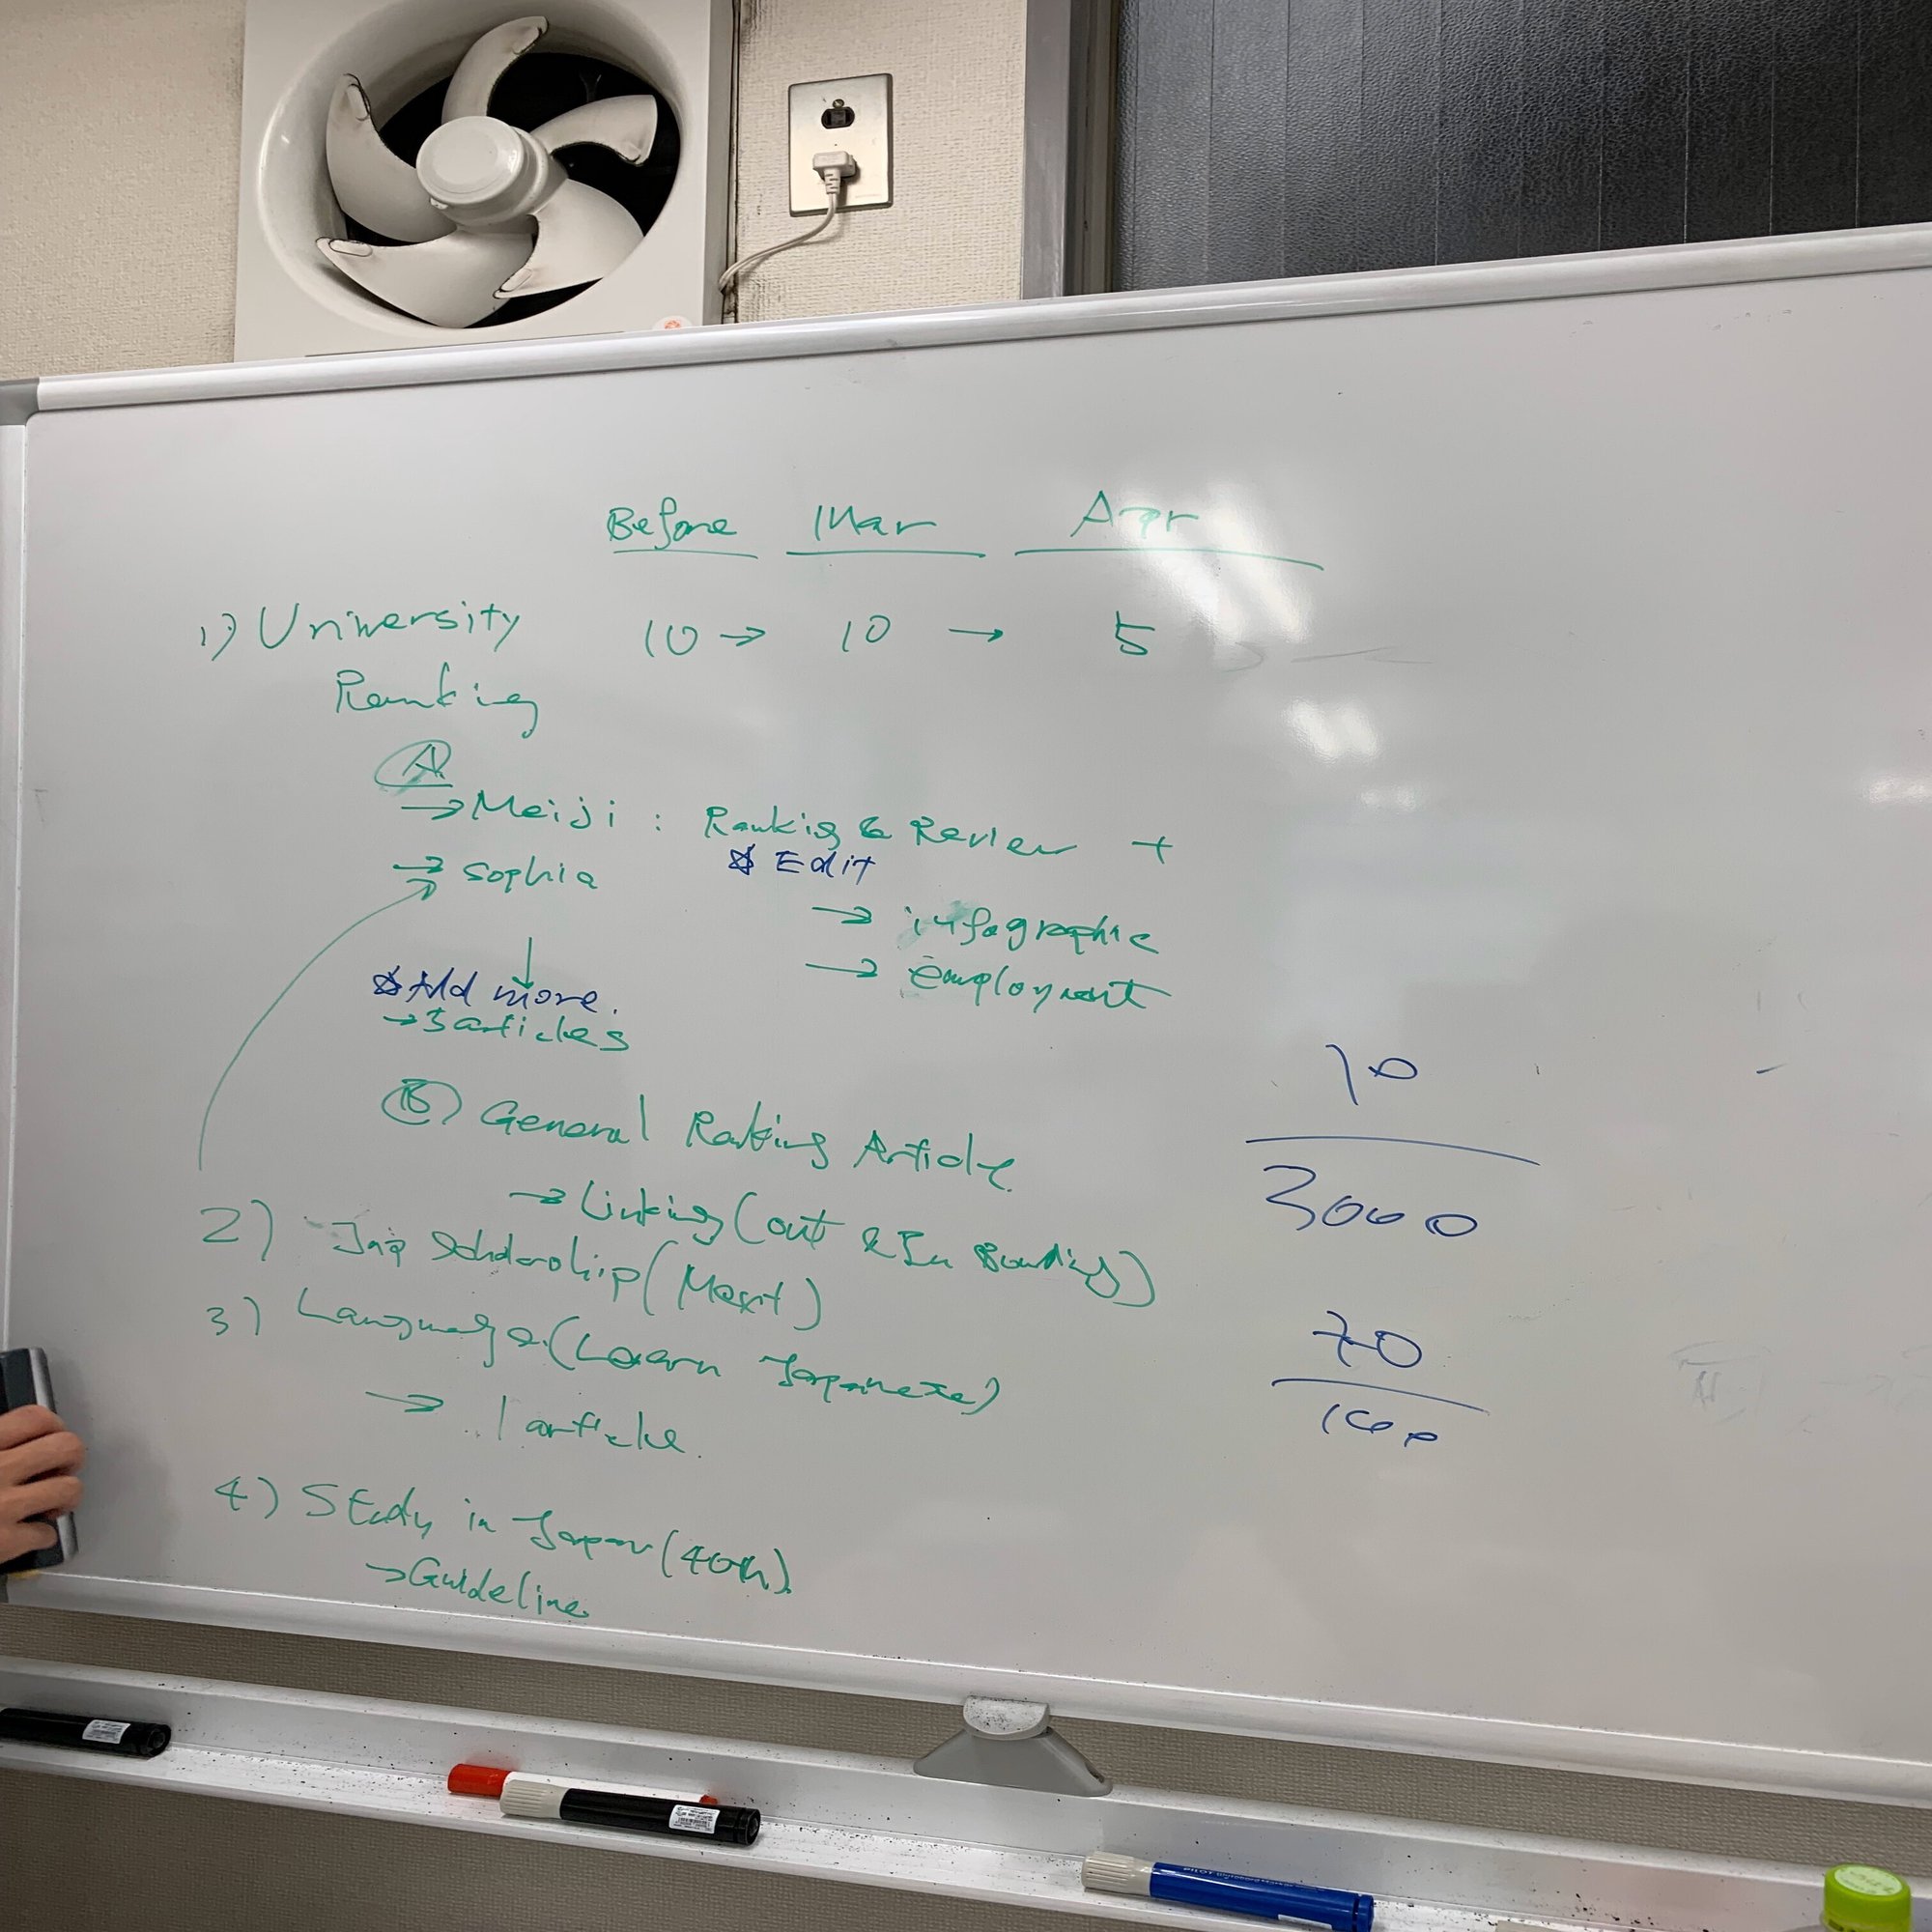 Before Mar Apr
1) University 10 → 10 → 5
Ranking
A
→ Meiji : Ranking & Review +
→ Sophia ☆ Edit
→ infographic
☆ Add more.
→ employment
→ 3 articles
B General Ranking Article
→ Linking (out & In Bounding)
2) Jap Scholarship (Mext)
3) Language (Learn Japanese)
→ 1 article.
4) Study in Japan (40k)
→ Guideline
10
3000
70
100